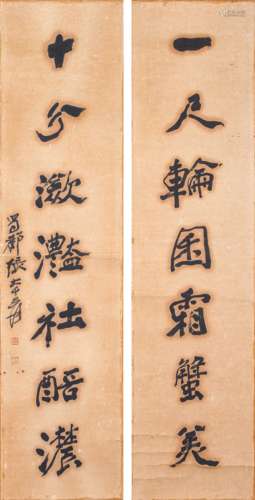 一尺輪囷霜蟹美
十分瀲灩社醅濃
蜀郡張大千爰